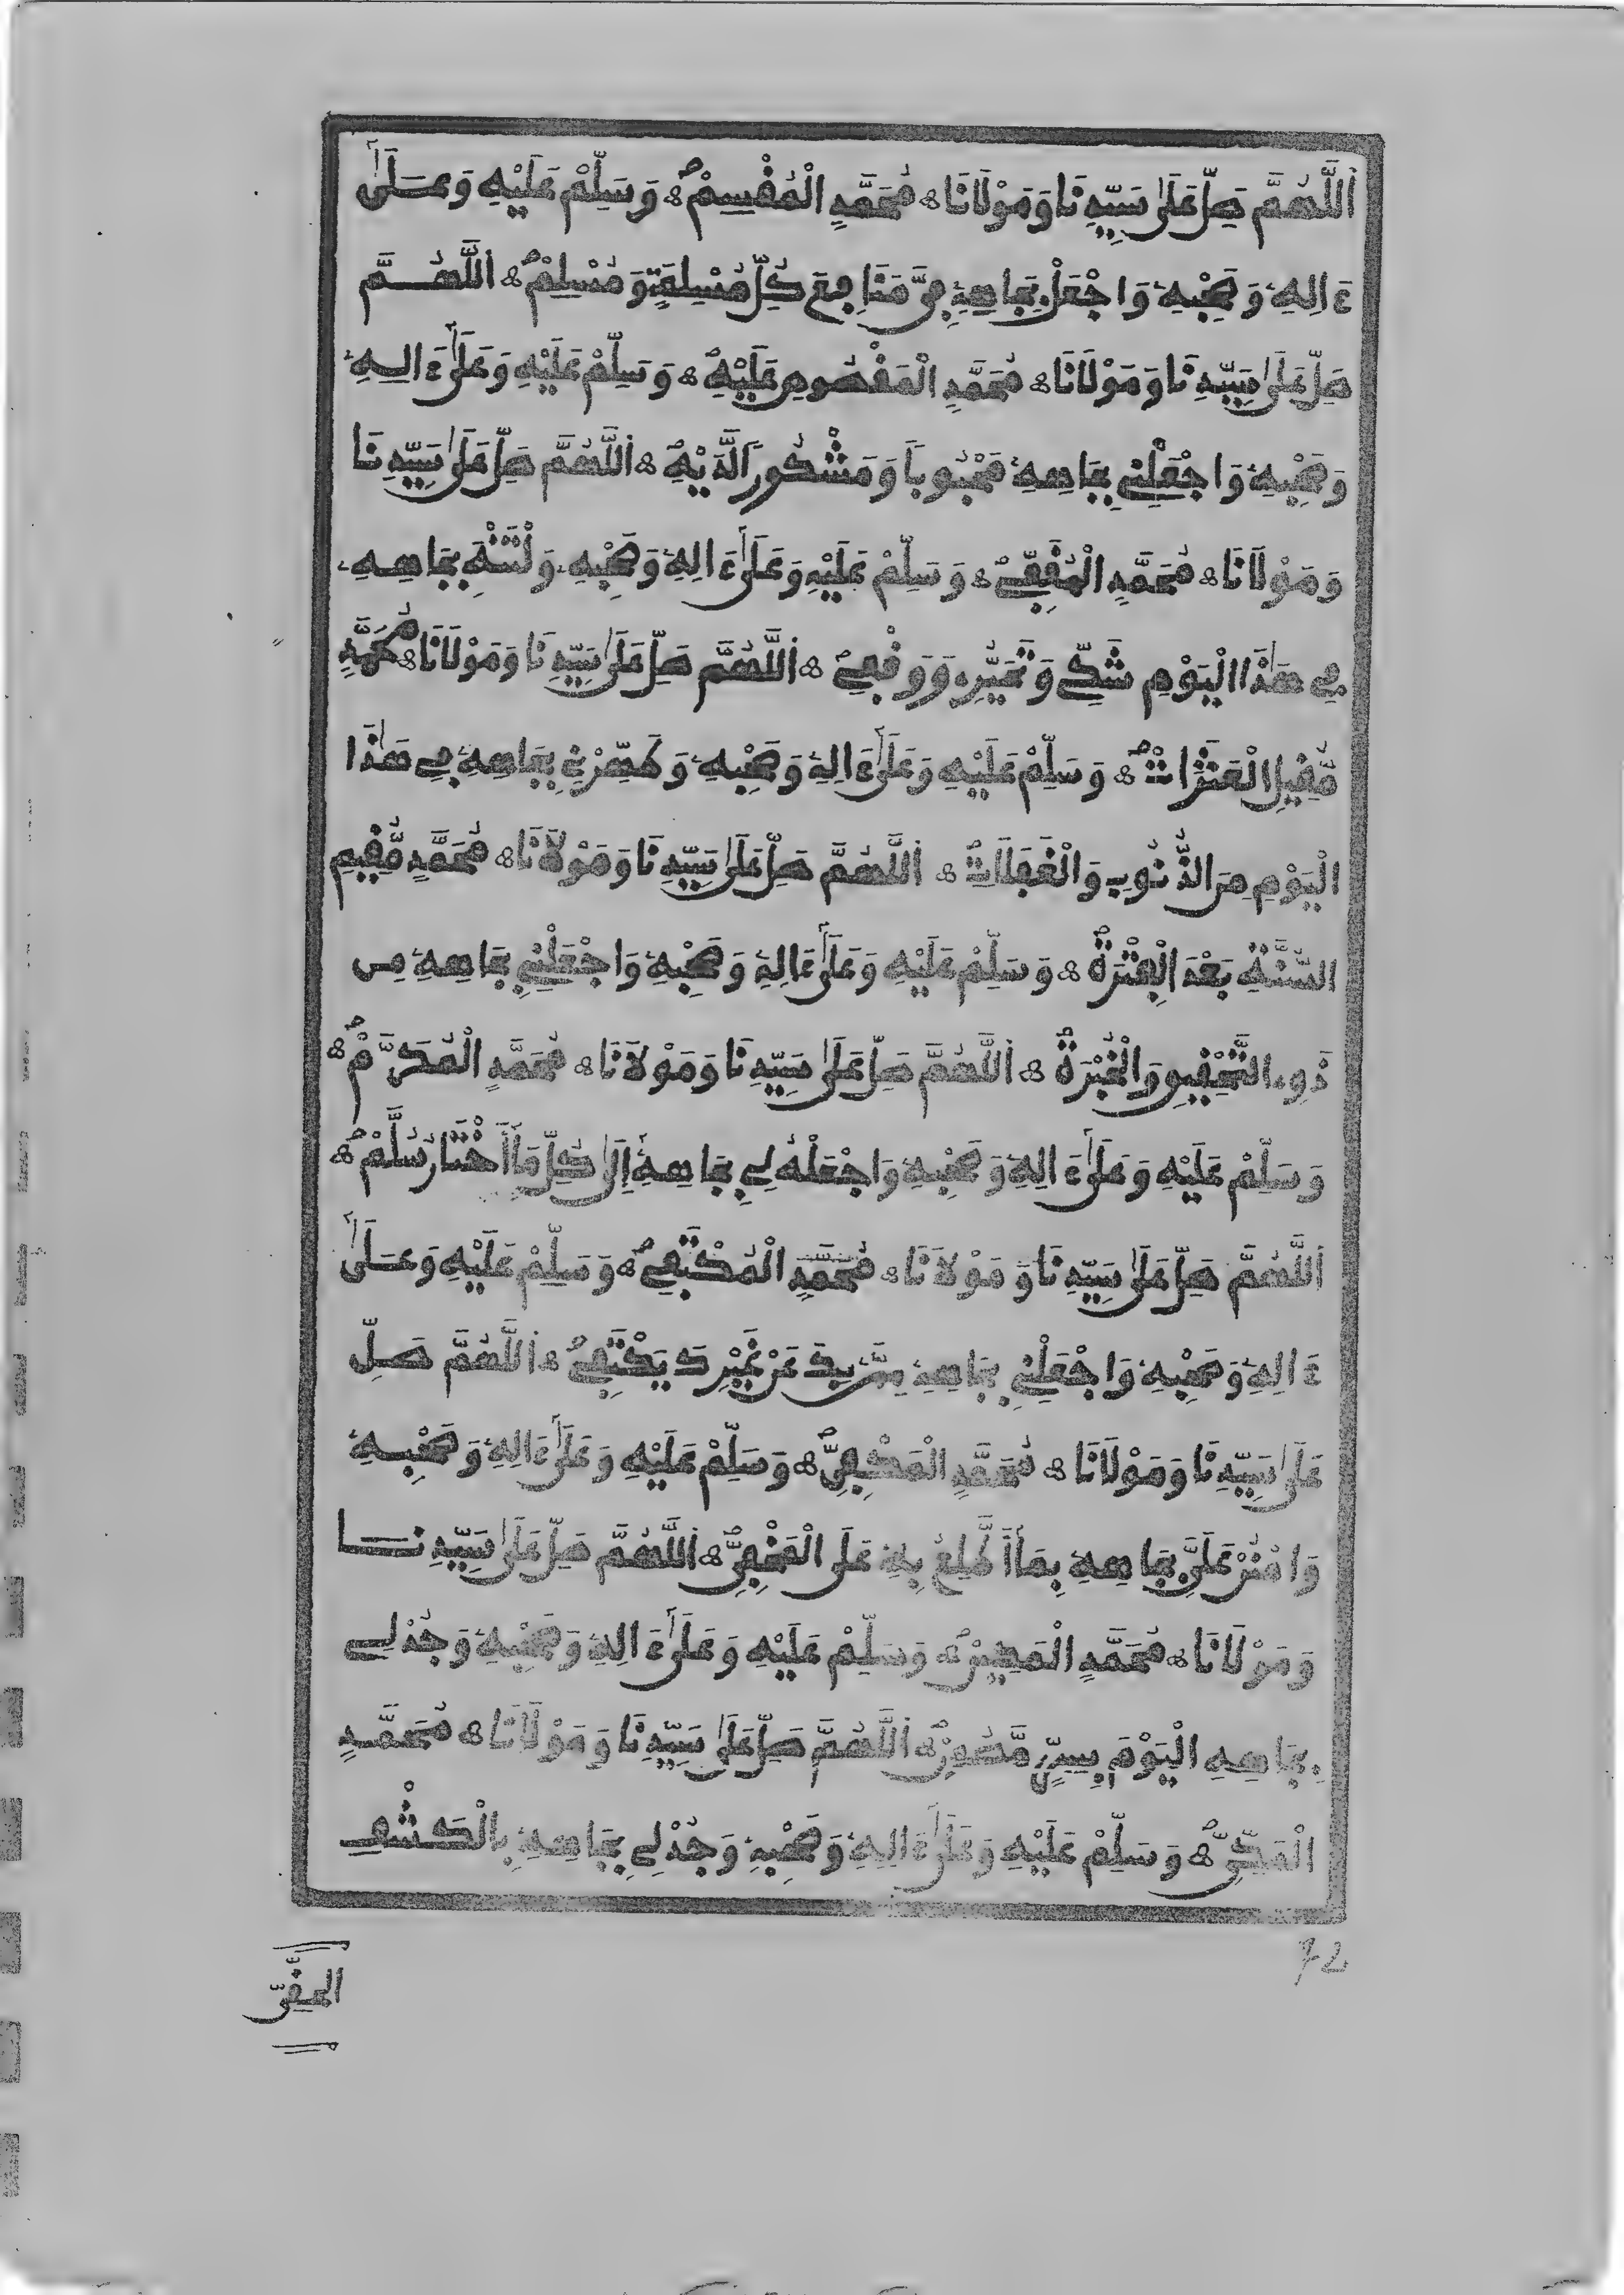 اَللَّهُمَّ صَلِّ عَلَىٰ سَيِّدِنَا وَمَوْلَانَا مُحَمَّدٍ الْمُقْسِمْ وَسَلِّمْ عَلَيْهِ وَعَلَىٰ
ءَالِهِ وَصَحْبِهِ وَاجْعَلْ بِجَاهِهِ فِىَّ مَنَافِعَ كُلِّ مُسْلِمَةٍ وَمُسْلِمْ اَللَّهُمَّ
صَلِّ عَلَىٰ سَيِّدِنَا وَمَوْلَانَا مُحَمَّدٍ الْمَقْصُوصِ عَلَيْهْ وَسَلِّمْ عَلَيْهِ وَعَلَىٰ ءَالِهِ
وَصَحْبِهِ وَاجْعَلْنِي بِجَاهِهِ مَحْبُوباً وَمَشْكُوراً لَّدَيْهْ اَللَّهُمَّ صَلِّ عَلَىٰ سَيِّدِنَا
وَمَوْلَانَا مُحَمَّدٍ الْمُقَفِّي وَسَلِّمْ عَلَيْهِ وَعَلَىٰ ءَالِهِ وَصَحْبِهِ وَلْتَنْتَهِ بِجَاهِهِ
فِي هَٰذَا الْيَوْمِ شَكِّي وَتَحَيُّرِي وَوَقْفِي اَللَّهُمَّ صَلِّ عَلَىٰ سَيِّدِنَا وَمَوْلَانَا مُحَمَّدٍ
مُّقِيلِ الْعَثَرَاتْ وَسَلِّمْ عَلَيْهِ وَعَلَىٰ ءَالِهِ وَصَحْبِهِ وَطَهِّرْنِي بِجَاهِهِ فِي هَٰذَا
الْيَوْمِ مِنَ الذُّنُوبِ وَالْغَفَلَاتْ اَللَّهُمَّ صَلِّ عَلَىٰ سَيِّدِنَا وَمَوْلَانَا مُحَمَّدٍ مُّقِيمِ
السُّنَّةِ بَعْدَ الْفَتْرَةْ وَسَلِّمْ عَلَيْهِ وَعَلَىٰ ءَالِهِ وَصَحْبِهِ وَاجْعَلْنِي بِجَاهِهِ مِن
ذَوِي التَّحْقِيقِ وَالْخُبْرَةْ اَللَّهُمَّ صَلِّ عَلَىٰ سَيِّدِنَا وَمَوْلَانَا مُحَمَّدٍ الْمُكَرَّمْ
وَسَلِّمْ عَلَيْهِ وَعَلَىٰ ءَالِهِ وَصَحْبِهِ وَاجْعَلْهُ لِي بِجَاهِهِ إِلَىٰ كُلِّ مَا أَخْتَارُ سُلَّمْ
اَللَّهُمَّ صَلِّ عَلَىٰ سَيِّدِنَا وَمَوْلَانَا مُحَمَّدٍ الْمُكْتَفِي وَسَلِّمْ عَلَيْهِ وَعَلَىٰ
ءَالِهِ وَصَحْبِهِ وَاجْعَلْنِي بِجَاهِهِ مِمَّن بِكَ عَنْ غَيْرِكَ يَكْتَفِي اَللَّهُمَّ صَلِّ
عَلَىٰ سَيِّدِنَا وَمَوْلَانَا مُحَمَّدٍ الْمَكْفِىّْ وَسَلِّمْ عَلَيْهِ وَعَلَىٰ ءَالِهِ وَصَحْبِهِ
وَامْنُنْ عَلَىَّ بِجَاهِهِ بِمَا أَطَّلِعُ بِهِ عَلَى الْمَخْفِىّْ اَللَّهُمَّ صَلِّ عَلَىٰ سَيِّدِنَا
وَمَوْلَانَا مُحَمَّدٍ الْمَكِينْ وَسَلِّمْ عَلَيْهِ وَعَلَىٰ ءَالِهِ وَصَحْبِهِ وَجُدْ لِي
بِجَاهِهِ الْيَوْمَ بِسِرٍّ مَّصُونْ اَللَّهُمَّ صَلِّ عَلَىٰ سَيِّدِنَا وَمَوْلَانَا مُحَمَّدٍ
الْمَكِّىّْ وَسَلِّمْ عَلَيْهِ وَعَلَىٰ ءَالِهِ وَصَحْبِهِ وَجُدْ لِي بِجَاهِهِ بِالْكَشْفِ
72